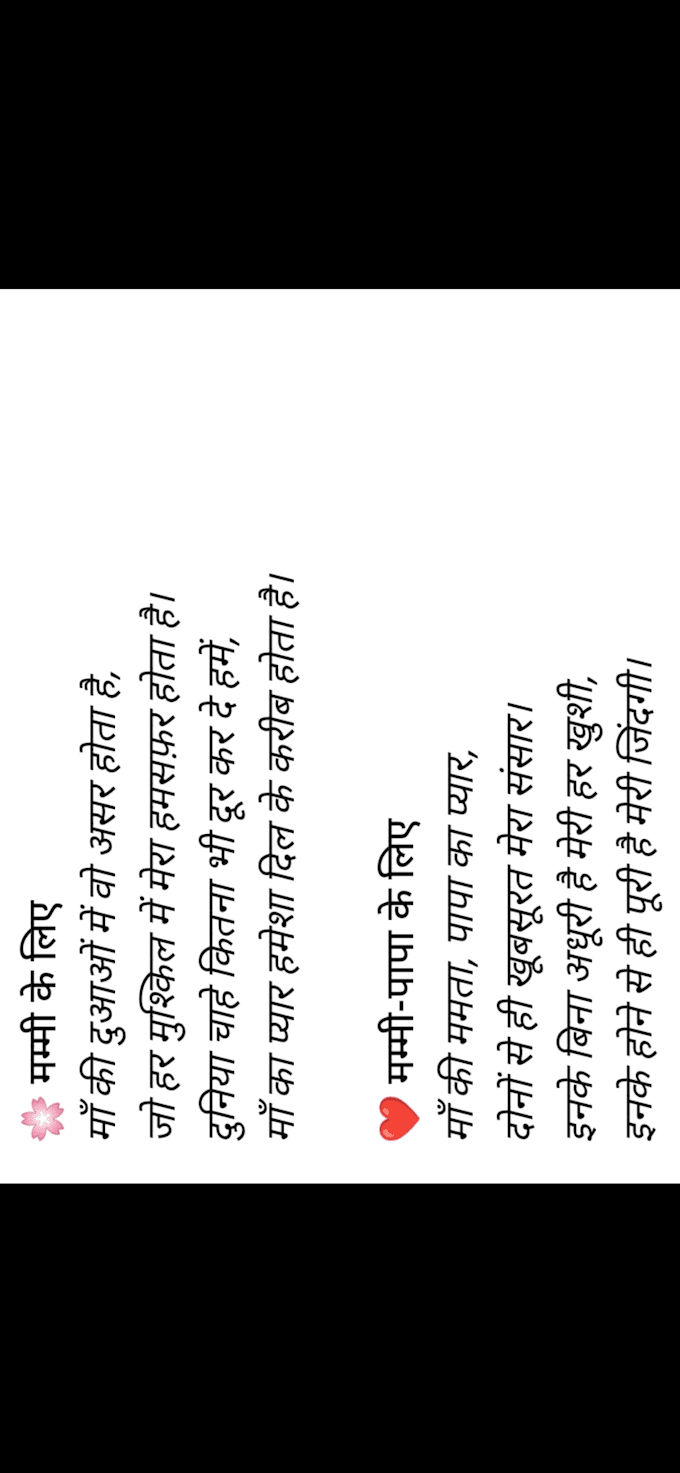 🌸 मम्मी के लिए
माँ की दुआओं में वो असर होता है,
जो हर मुश्किल में मेरा हमसफ़र होता है।
दुनिया चाहे कितना भी दूर कर दे हमें,
माँ का प्यार हमेशा दिल के करीब होता है।
❤️ मम्मी-पापा के लिए
माँ की ममता, पापा का प्यार,
दोनों से ही खूबसूरत मेरा संसार।
इनके बिना अधूरी है मेरी हर खुशी,
इनके होने से ही पूरी है मेरी ज़िंदगी।